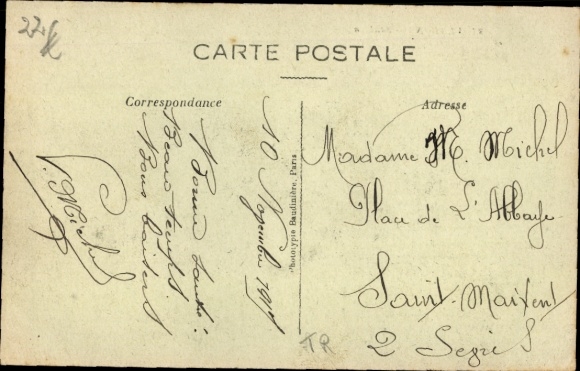 CARTE POSTALE
Correspondance
Adresse
10 Novembre
Bonne Santé.
Beau temps
Bons baisers
P. Michel
Phototypie Baudinière, Paris
Madame M. Michel
Place de L'Abbaye
Saint-Maixent
2 Sevres
TR